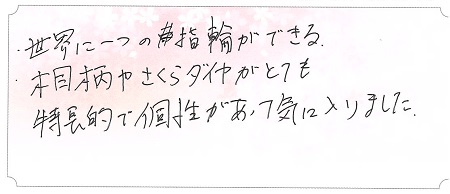 ・世界に一つの指輪ができる、
・木目柄やさくらダイヤがとても
特長的で個性があって気に入りました。